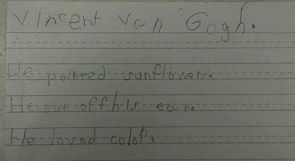 Vincent Van Gogh.
He painted sunflowers.
He cut off his ear.
He loved color.